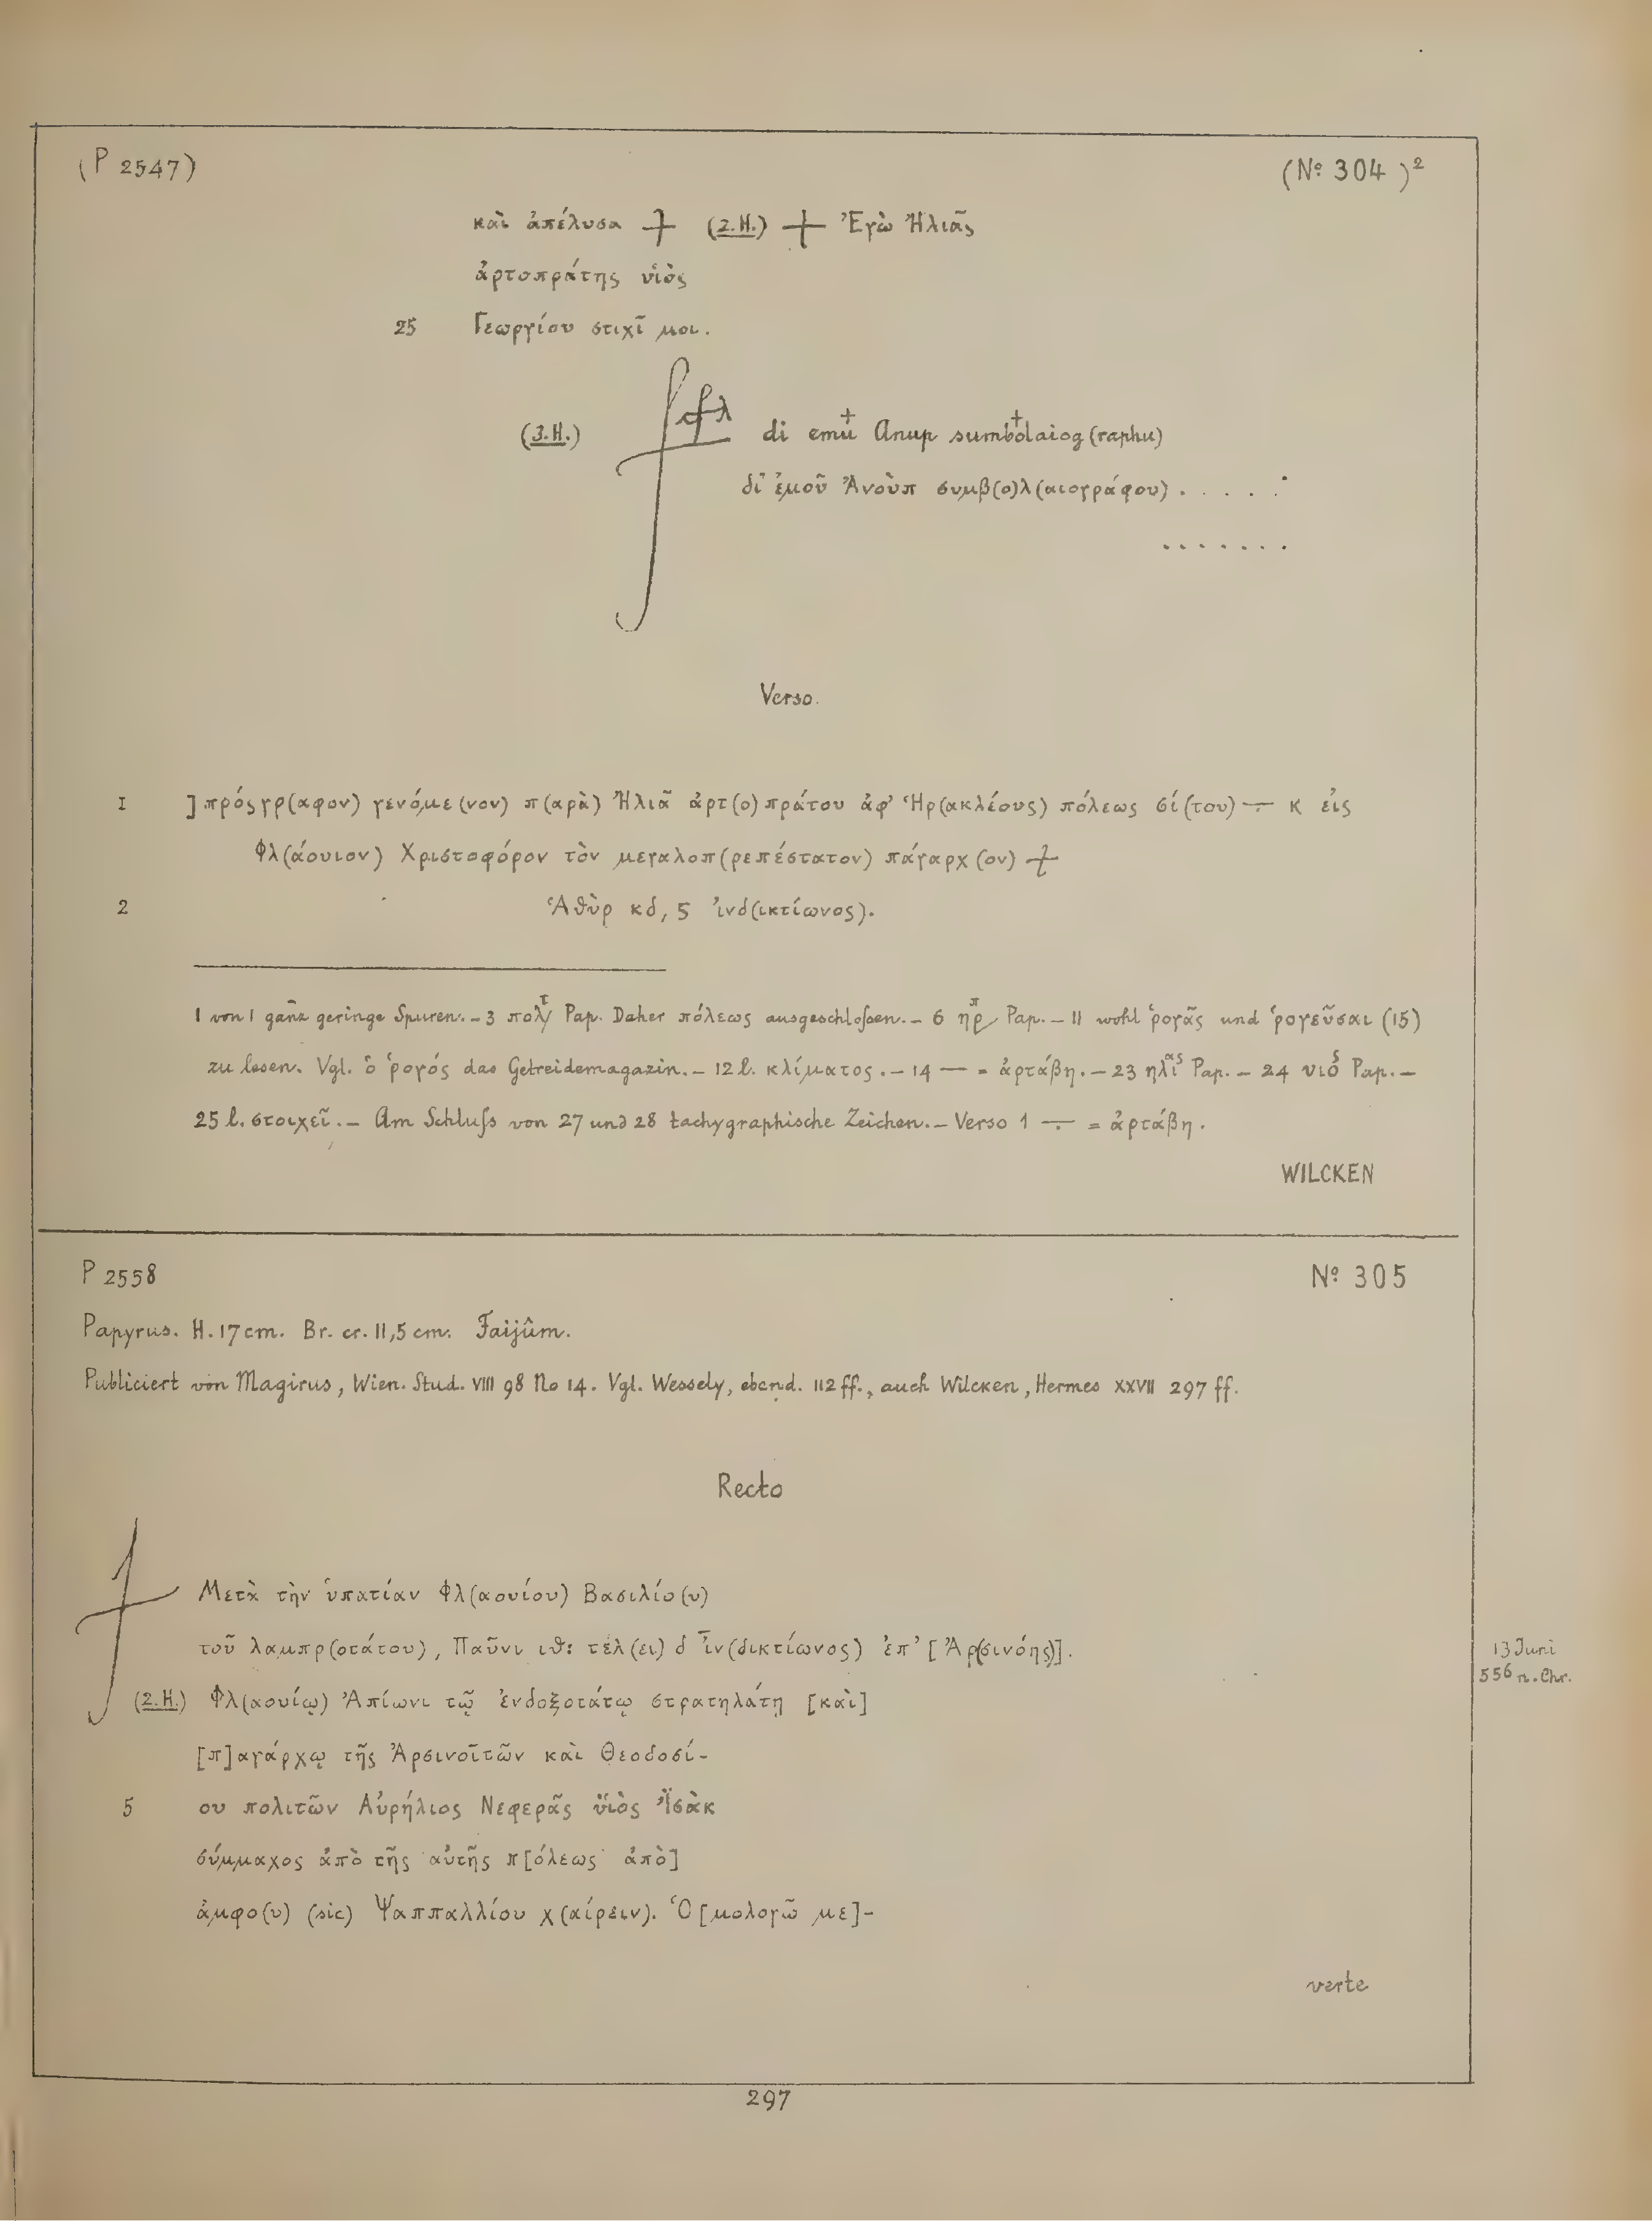 (P 2547) (Nº 304)²
καὶ ἀπέλυσα ⳨ (2.H.) + Ἐγὼ Ἠλιᾶς
ἀρτοπράτης υἱὸς
25 Γεωργίου στιχῖ μοι.
(3.H.) di emu Anup sumbolaiog(raphu)
δι’ ἐμοῦ Ἀνοὺπ συμβ(ο)λ(αιογράφου) . . . . .
. . . . . . .
Verso.
1 ] πρόσγρ(αφον) γενόμε(νον) π(αρὰ) Ἠλιᾶ ἀρτ(ο)πράτου ἀφ’ Ἡρ(ακλέους) πόλεως σί(του) ⸓ κ εἰς
Φλ(άουιον) Χριστοφόρον τὸν μεγαλοπ(ρεπέστατον) πάγαρχ(ον) ⳨
2 Ἁθὺρ κδ, 5 ἰνδ(ικτίωνος).
1 von 1 ganz geringe Spuren. – 3 πολ/τ Pap. Daher πόλεως ausgeschloſsen. – 6 ηρπ Pap. – 11 wohl ῥογᾶς und ῥογεῦσαι (15)
zu lesen. Vgl. ὁ ῥογός das Getreidemagazin. – 12 l. κλίματος. – 14 — = ἀρτάβη. – 23 ηλιας Pap. – 24 υιος Pap. –
25 l. στοιχεῖ. – Am Schluſs von 27 und 28 tachygraphische Zeichen. – Verso 1 ⸓ = ἀρτάβη.
WILCKEN
P 2558 Nº 305
Papyrus. H. 17 cm. Br. cr. 11,5 cm. Faijûm.
Publiciert von Magirus, Wien. Stud. VIII 98 No 14. Vgl. Wessely, ebend. 112 ff., auch Wilcken, Hermes XXVII 297 ff.
Recto
Μετὰ τὴν ὑπατίαν Φλ(αουίου) Βασιλίο(υ)
τοῦ λαμπρ(οτάτου), Παῦνι ιθ: τέλ(ει) δ ἰν(δικτίωνος) ἐπ’ [Ἀρ(σινόης)]. 13 Juni
556 n. Chr.
(2.H.) Φλ(αουίῳ) Ἀπίωνι τῷ ἐνδοξοτάτῳ στρατηλάτῃ [καὶ]
[π]αγάρχῳ τῆς Ἀρσινοϊτῶν καὶ Θεοδοσί-
5 ου πολιτῶν Αὐρήλιος Νεφερᾶς υἱὸς Ἰσὰκ
σύμμαχος ἀπὸ τῆς αὐτῆς π[όλεως ἀπὸ]
ἀμφο(υ) (sic) Ψαππαλλίου χ(αίρειν). Ὁ[μολογῶ με]-
verte
297